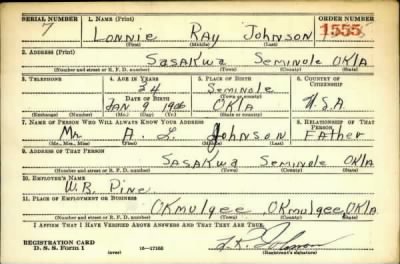 SERIAL NUMBER 1. NAME (Print) ORDER NUMBER
7 LONNIE RAY JOHNSON 1555
(First) (Middle) (Last)
2. ADDRESS (Print)
SASAKWA SEMINOLE OKLA
(Number and street or R. F. D. number) (Town) (County) (State)
3. TELEPHONE 4. AGE IN YEARS 5. PLACE OF BIRTH 6. COUNTRY OF CITIZENSHIP
34 SEMINOLE
DATE OF BIRTH (Town or county)
JAN 9 1906 OKLA U.S.A
(Exchange) (Number) (Mo.) (Day) (Yr.) (State or country)
7. NAME OF PERSON WHO WILL ALWAYS KNOW YOUR ADDRESS 8. RELATIONSHIP OF THAT PERSON
Mr. A. L. Johnson Father
(Mr., Mrs., Miss) (First) (Middle) (Last)
9. ADDRESS OF THAT PERSON
SASAKWA SEMINOLE OKLA
(Number and street or R. F. D. number) (Town) (County) (State)
10. EMPLOYER'S NAME
W.B. Pine
11. PLACE OF EMPLOYMENT OR BUSINESS
OKmulgee, OKmulgee, OKLA
(Number and street or R. F. D. number) (Town) (County) (State)
I AFFIRM THAT I HAVE VERIFIED ABOVE ANSWERS AND THAT THEY ARE TRUE.
REGISTRATION CARD
D. S. S. Form 1 (over) 16—17105 (Registrant's signature)